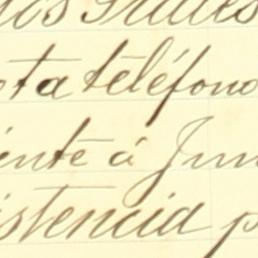 os Grades
ta teléfono
ente á Jun
istencia p